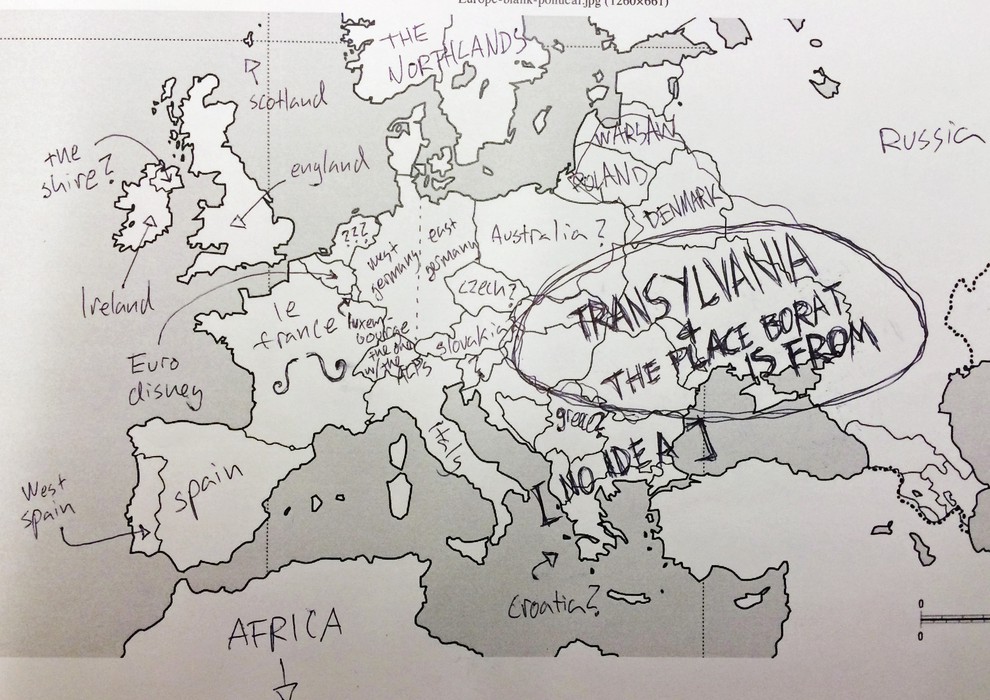 Europe-blank-political.jpg (1260×661)
THE
NORTHLANDS
scotland
the
shire?
england
Ireland
Russia
WARSAW
POLAND
DENMARK
???
west
germany
east
germany
Australia?
czech?
TRANSYLVANIA
+
THE PLACE BORAT
IS FROM
le
france
luxem-
bourge
the one
w/ the
ALPS
slovakia
Euro
disney
greece?
[NO IDEA]
spain
West
spain
Croatia?
AFRICA
0
0